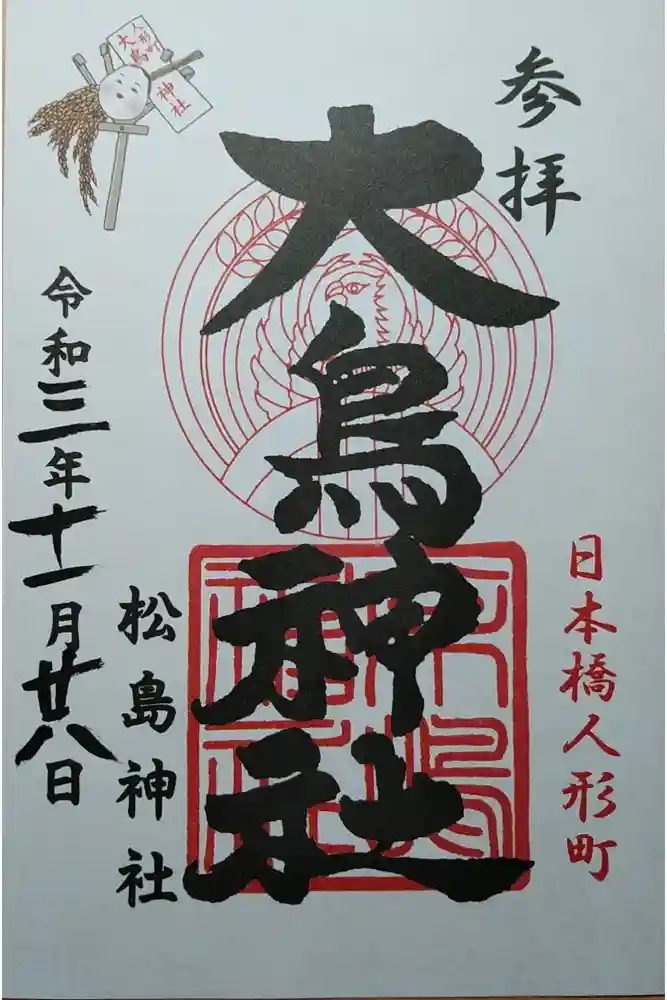 参拝
日本橋人形町
大鳥神社
松島神社
令和三年十一月廿八日
人形町
大鳥
神社